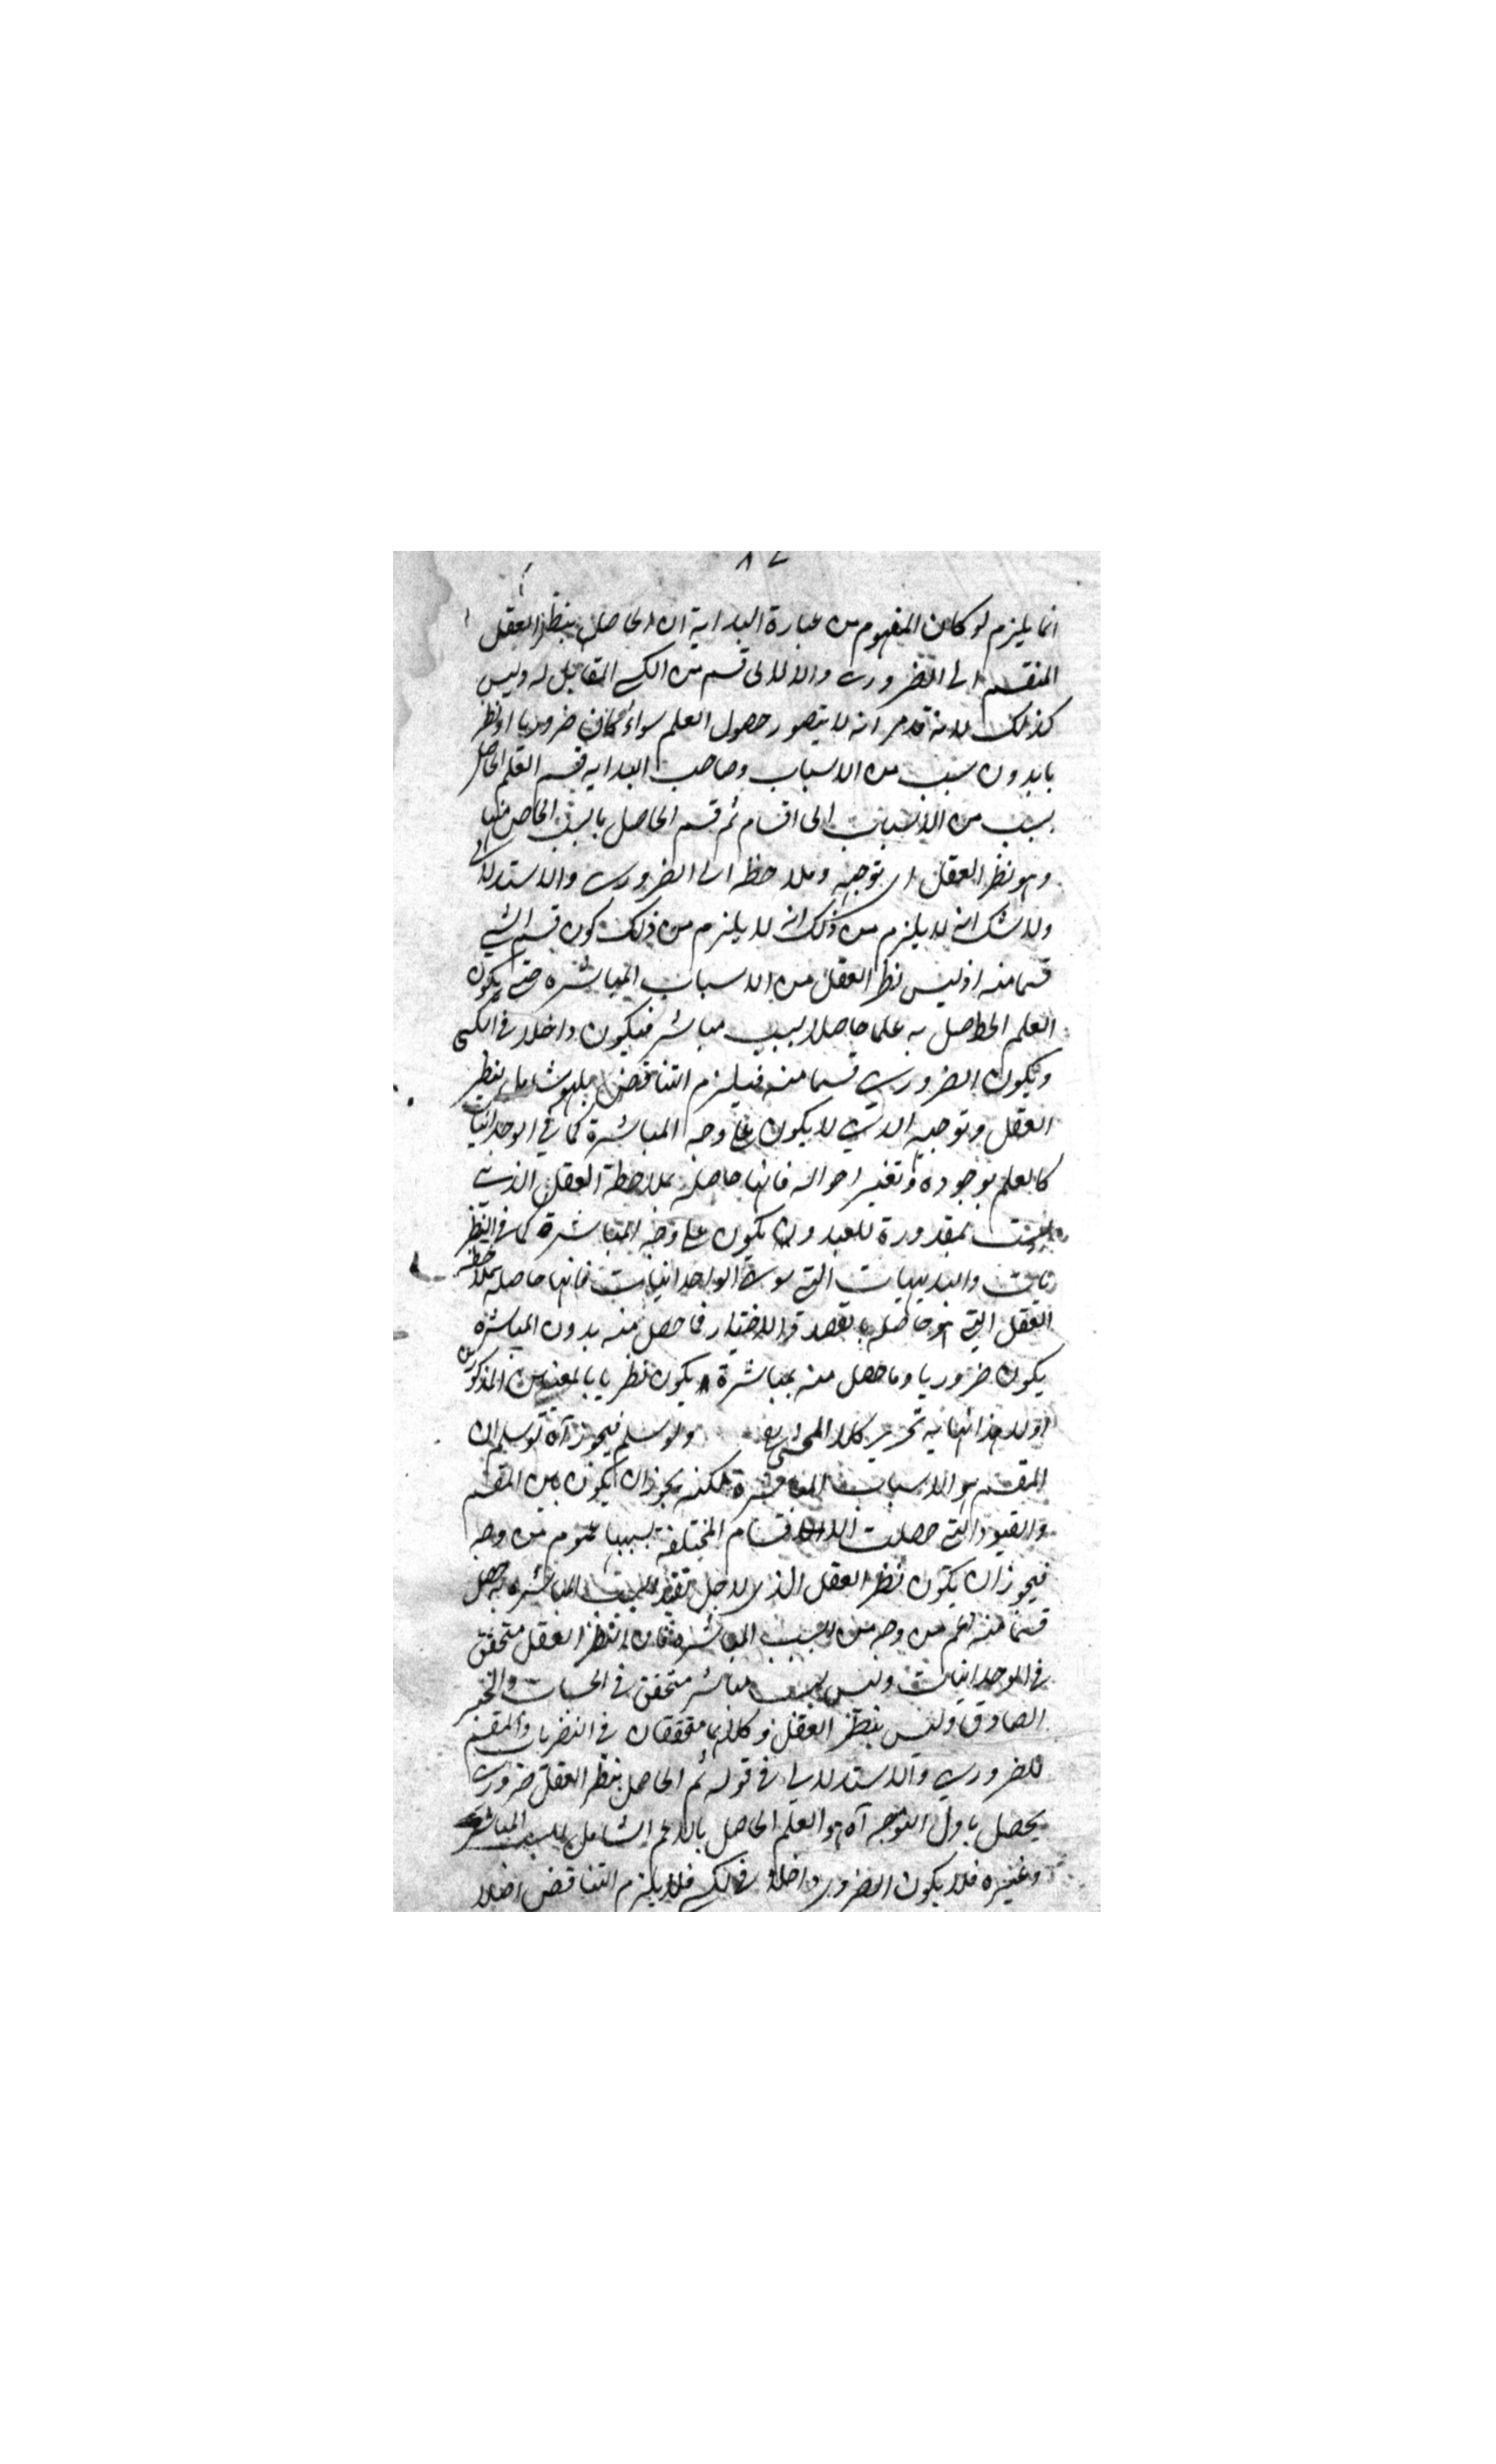 انما يلزم لو كان المفهوم من عبارة البداية ان الحاصل بنظر العقل
المنقسم الى الضروري والاستدلالي قسم من الكسبي المقابل له وليس
كذلك لانه قد مر انه لا يتصور حصول العلم سواء كان ضروريا او نظر
يا بدون سبب من الاسباب وصاحب البداية قسم العلم الحاصل
بسبب من الاسباب الى اقسام ثم قسم الحاصل بالسبب الخاص منها
وهو نظر العقل اي توجهه وملاحظه الى الضروري والاستدلالي
ولا شك انه لا يلزم من ذلك انه لا يلزم من ذلك كون قسيم الشي
قسما منه اذ ليس نظر العقل من الاسباب المباشرة حتى يكون
العلم الحاصل به علما حاصلا بسبب مباشر فيكون داخلا في الكسبي
ويكون الضروري قسما منه فيلزم التناقض بل هو شامل لنظر
العقل وتوجيه الذي لا يكون على وجه المباشرة كما في الوجدانيات
كالعلم بوجوده وتغير احواله فانها حاصلة بملاحظة العقل الذي
ليست بمقدورة للعبد ون يكون على وجه المباشرة كما في النظر
يات والبديهيات التي سوى الوجدانيات فانها حاصلة بملاحظة
العقل التي هو حاصله بالقصد والاختيار فما حصل منه بدون المباشرة
يكون ضروريا وما حصل منه بمباشرة يكون نظريا بالمعنيين المذكورين
اولا هذا نهاية تحرير كلام المحشي ولو سلم فيجوز آه لو سلم ان
المقسم هو الاسباب المباشرة لكنه يجوز ان يكون بين المقسم
والقيود التي حصلت الاقسام المختلفة بسببها عموم من وجه
فيجوز ان يكون نظر العقل الذي لاجل تقييد السبب المباشر به حصل
قسما منه اعم من وجه من السبب المباشر فان نظر العقل متحقق
في الوجدانيات وليس بسبب مباشر متحقق في الحسيات والخبر
الصادق وليس بنظر العقل وكلاهما متحققان في النظريات والمقسم
للضروري والاستدلالي في قوله ثم الحاصل بنظر العقل ضروري
يحصل باول التوجه آه هو العلم الحاصل بالاعم الشامل للسبب المباشر
وغيره فلا يكون الضروري داخلا في الكسبي فلا يلزم التناقض اصلا